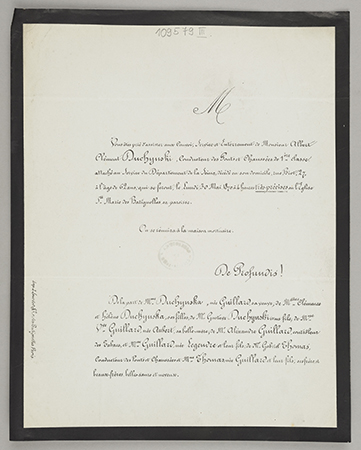 109579 III
M
Vous êtes prié d'assister aux Convoi, Service et Enterrement de Monsieur Albert
Clément Duchynski, Conducteur des Ponts et Chaussées de 1ère Classe
attaché au Service du Département de la Seine, décédé en son domicile, rue Biot, 27,
à l'âge de 62 ans, qui se feront, le Lundi 30 Mai 1870 à heures très précises en l'Église
Ste Marie des Batignolles sa paroisse.
On se réunira à la maison mortuaire.
De Profundis!
De la part de Mme Duchynska, née Guillard, sa veuve, de Mmes Clémence
et Hélène Duchynska, ses filles, de M. Gustave Duchynski son fils, de Mme
Vve Guillard née Aubert, sa belle-mère, de M. Alexandre Guillard, contrôleur
des Tabacs, et Mme Guillard née Legendre et leur fils, de M. Gabriel Thomas,
Conducteur des Ponts et Chaussées et Mme Thomas née Guillard et leur fils, ses frères et
beaux-frères, belles-sœurs et neveux.